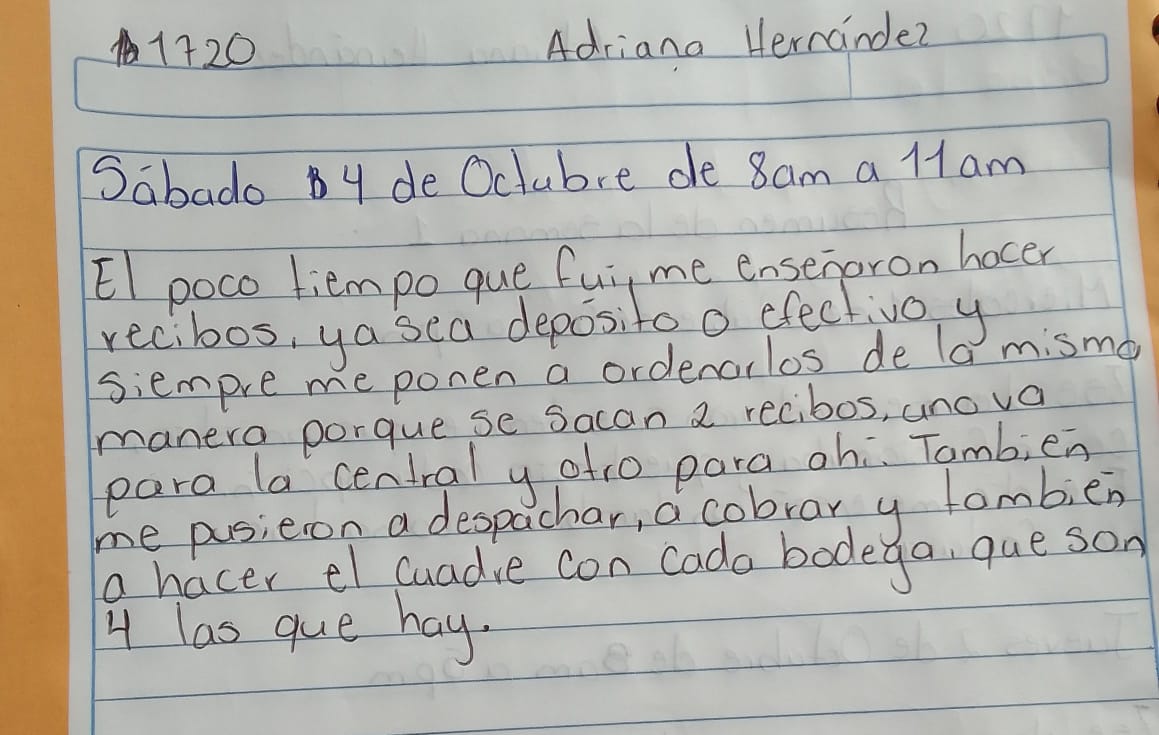 1720 Adriana Hernández
Sábado 4 de Octubre de 8am a 11am
El poco tiempo que fui, me enseñaron hacer
recibos, ya sea depósito o efectivo y
siempre me ponen a ordenarlos de la misma
manera porque se sacan 2 recibos, uno va
para la central y otro para ahí. También
me pusieron a despachar, a cobrar y también
a hacer el cuadre con cada bodega, que son
4 las que hay.